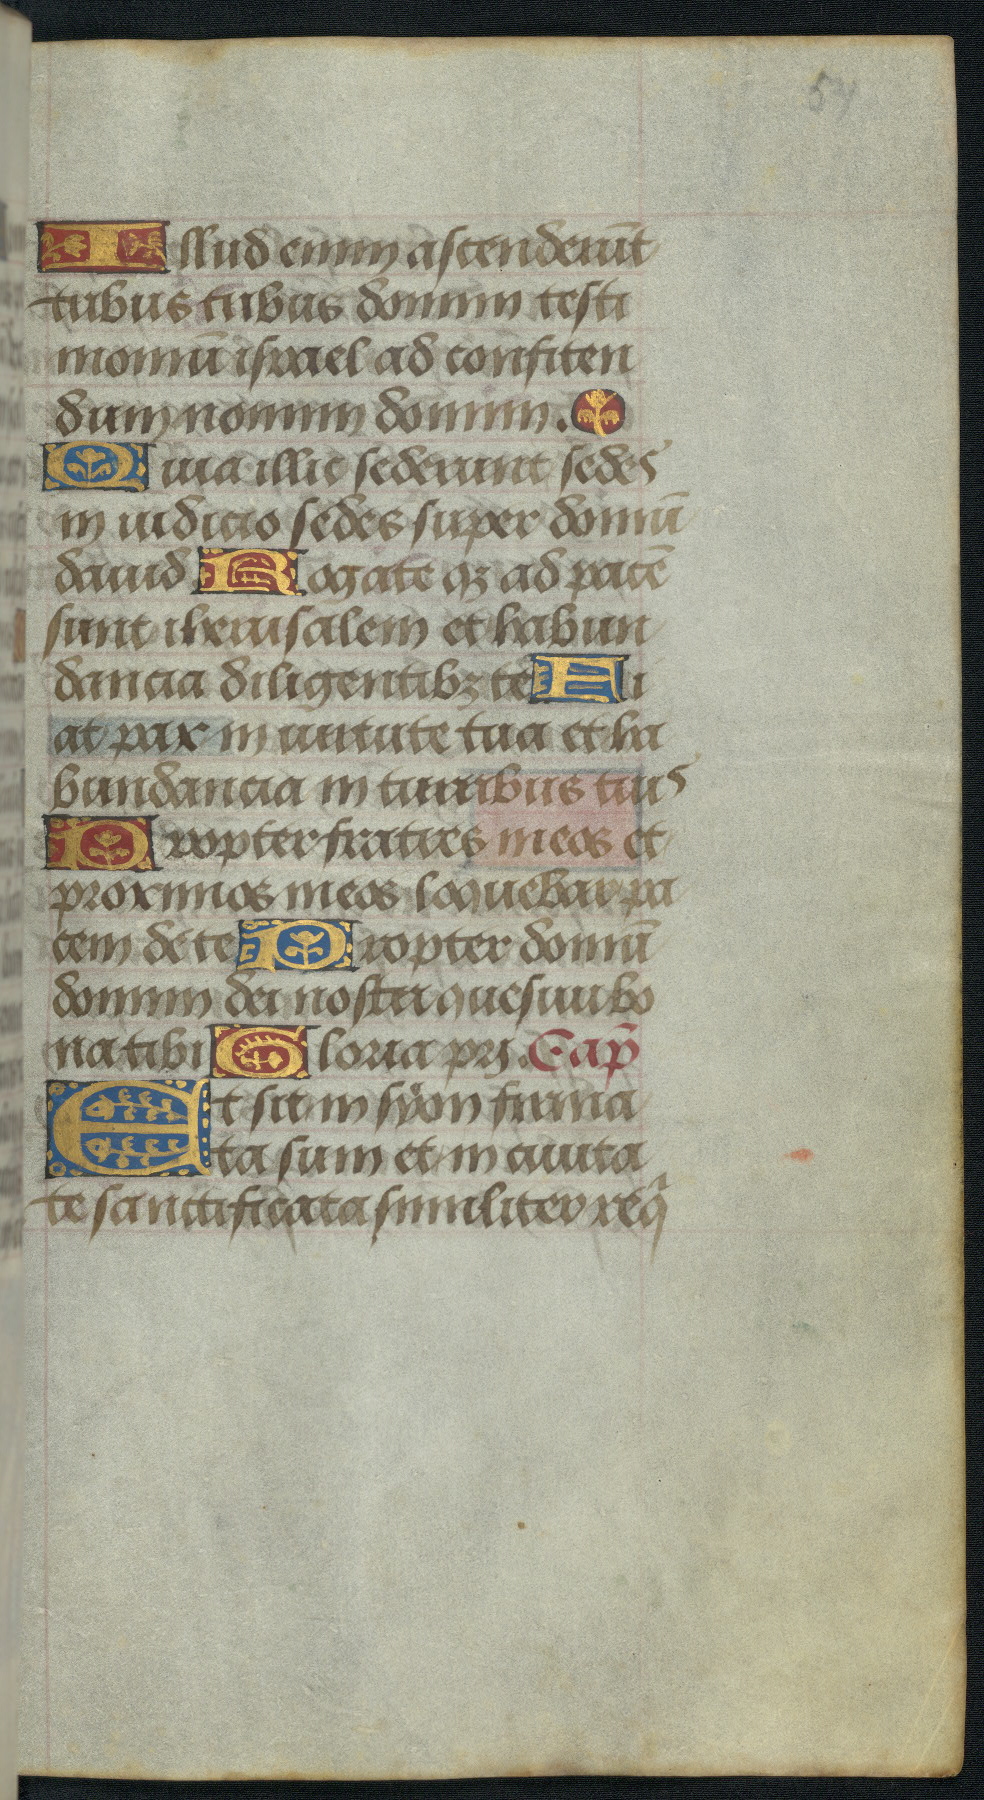 54
Illud enim ascenderūt
tribus tribus domini testi
moniū israel ad confiten
dum nomini domini.
Quia illic sederunt sedes
in iudicio sedes super domū
dauid Rogate qʒ ad pacē
sunt iherusalem et habun
dancia diligentibʒ te Fi
at pax in uirtute tua et ha
bundancia in turribus tuis
Propter fratres meos et
proximos meos loquebar pa
cem de te Propter domū
domini dei nostri quesiui bo
na tibi Gloria prj. Cap̄
Et sic in syon firma
ta sum et in ciuita
te sanctificata similiter req̄